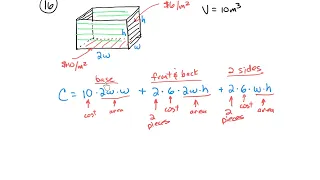 16
$6/m²
V = 10m³
h
h
$10/m²
w
2w
base
front & back
2 sides
C = 10·2w·w + 2·6·2w·h + 2·6·w·h
cost area 2 pieces cost area 2 pieces cost area